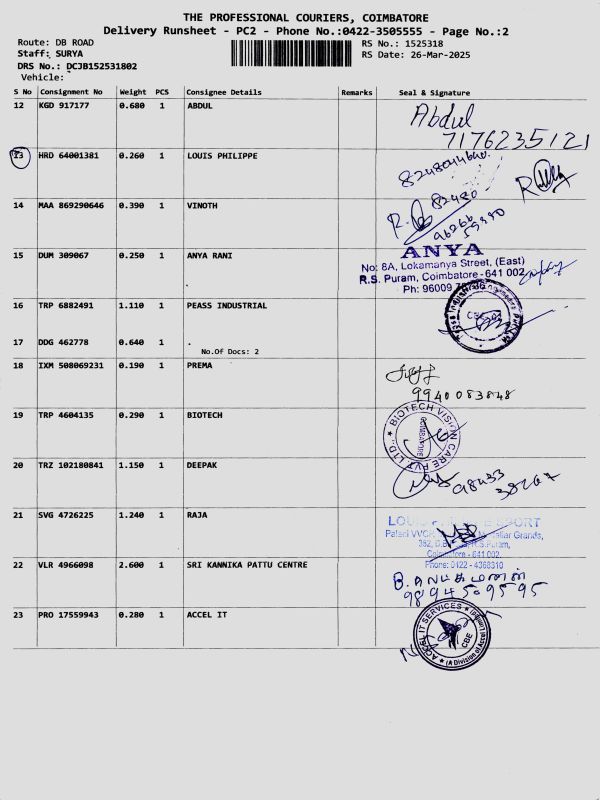 THE PROFESSIONAL COURIERS, COIMBATORE
Delivery Runsheet - PC2 - Phone No.:0422-3505555 - Page No.:2
Route: DB ROAD
RS No.: 1525318
Staff: SURYA
RS Date: 26-Mar-2025
DRS No.: DCJB152531802
Vehicle:
S No Consignment No Weight PCS Consignee Details Remarks Seal & Signature
12 KGD 917177 0.680 1 ABDUL
Abdul
7176235121
13 HRD 64001381 0.260 1 LOUIS PHILIPPE
14 MAA 869290646 0.390 1 VINOTH
82480
96266
59990
15 DUM 309067 0.250 1 ANYA RANI
ANYA
No: 8A, Lokamanya Street, (East)
R.S. Puram, Coimbatore - 641 002
Ph: 96009
16 TRP 6882491 1.110 1 PEASS INDUSTRIAL
17 DDG 462778 0.640 1 .
No.Of Docs: 2
18 IXM 508069231 0.190 1 PREMA
9940083848
19 TRP 4604135 0.290 1 BIOTECH
BIOTECH VISION CARE PVT LTD.
20 TRZ 102180841 1.150 1 DEEPAK
98433
38267
21 SVG 4726225 1.240 1 RAJA
Coimbatore - 641 002.
Phone: 0422 - 4368310
22 VLR 4966098 2.600 1 SRI KANNIKA PATTU CENTRE
9894509595
23 PRO 17559943 0.280 1 ACCEL IT
ACCEL IT SERVICES
CBE
(A Division of Accel Limited)